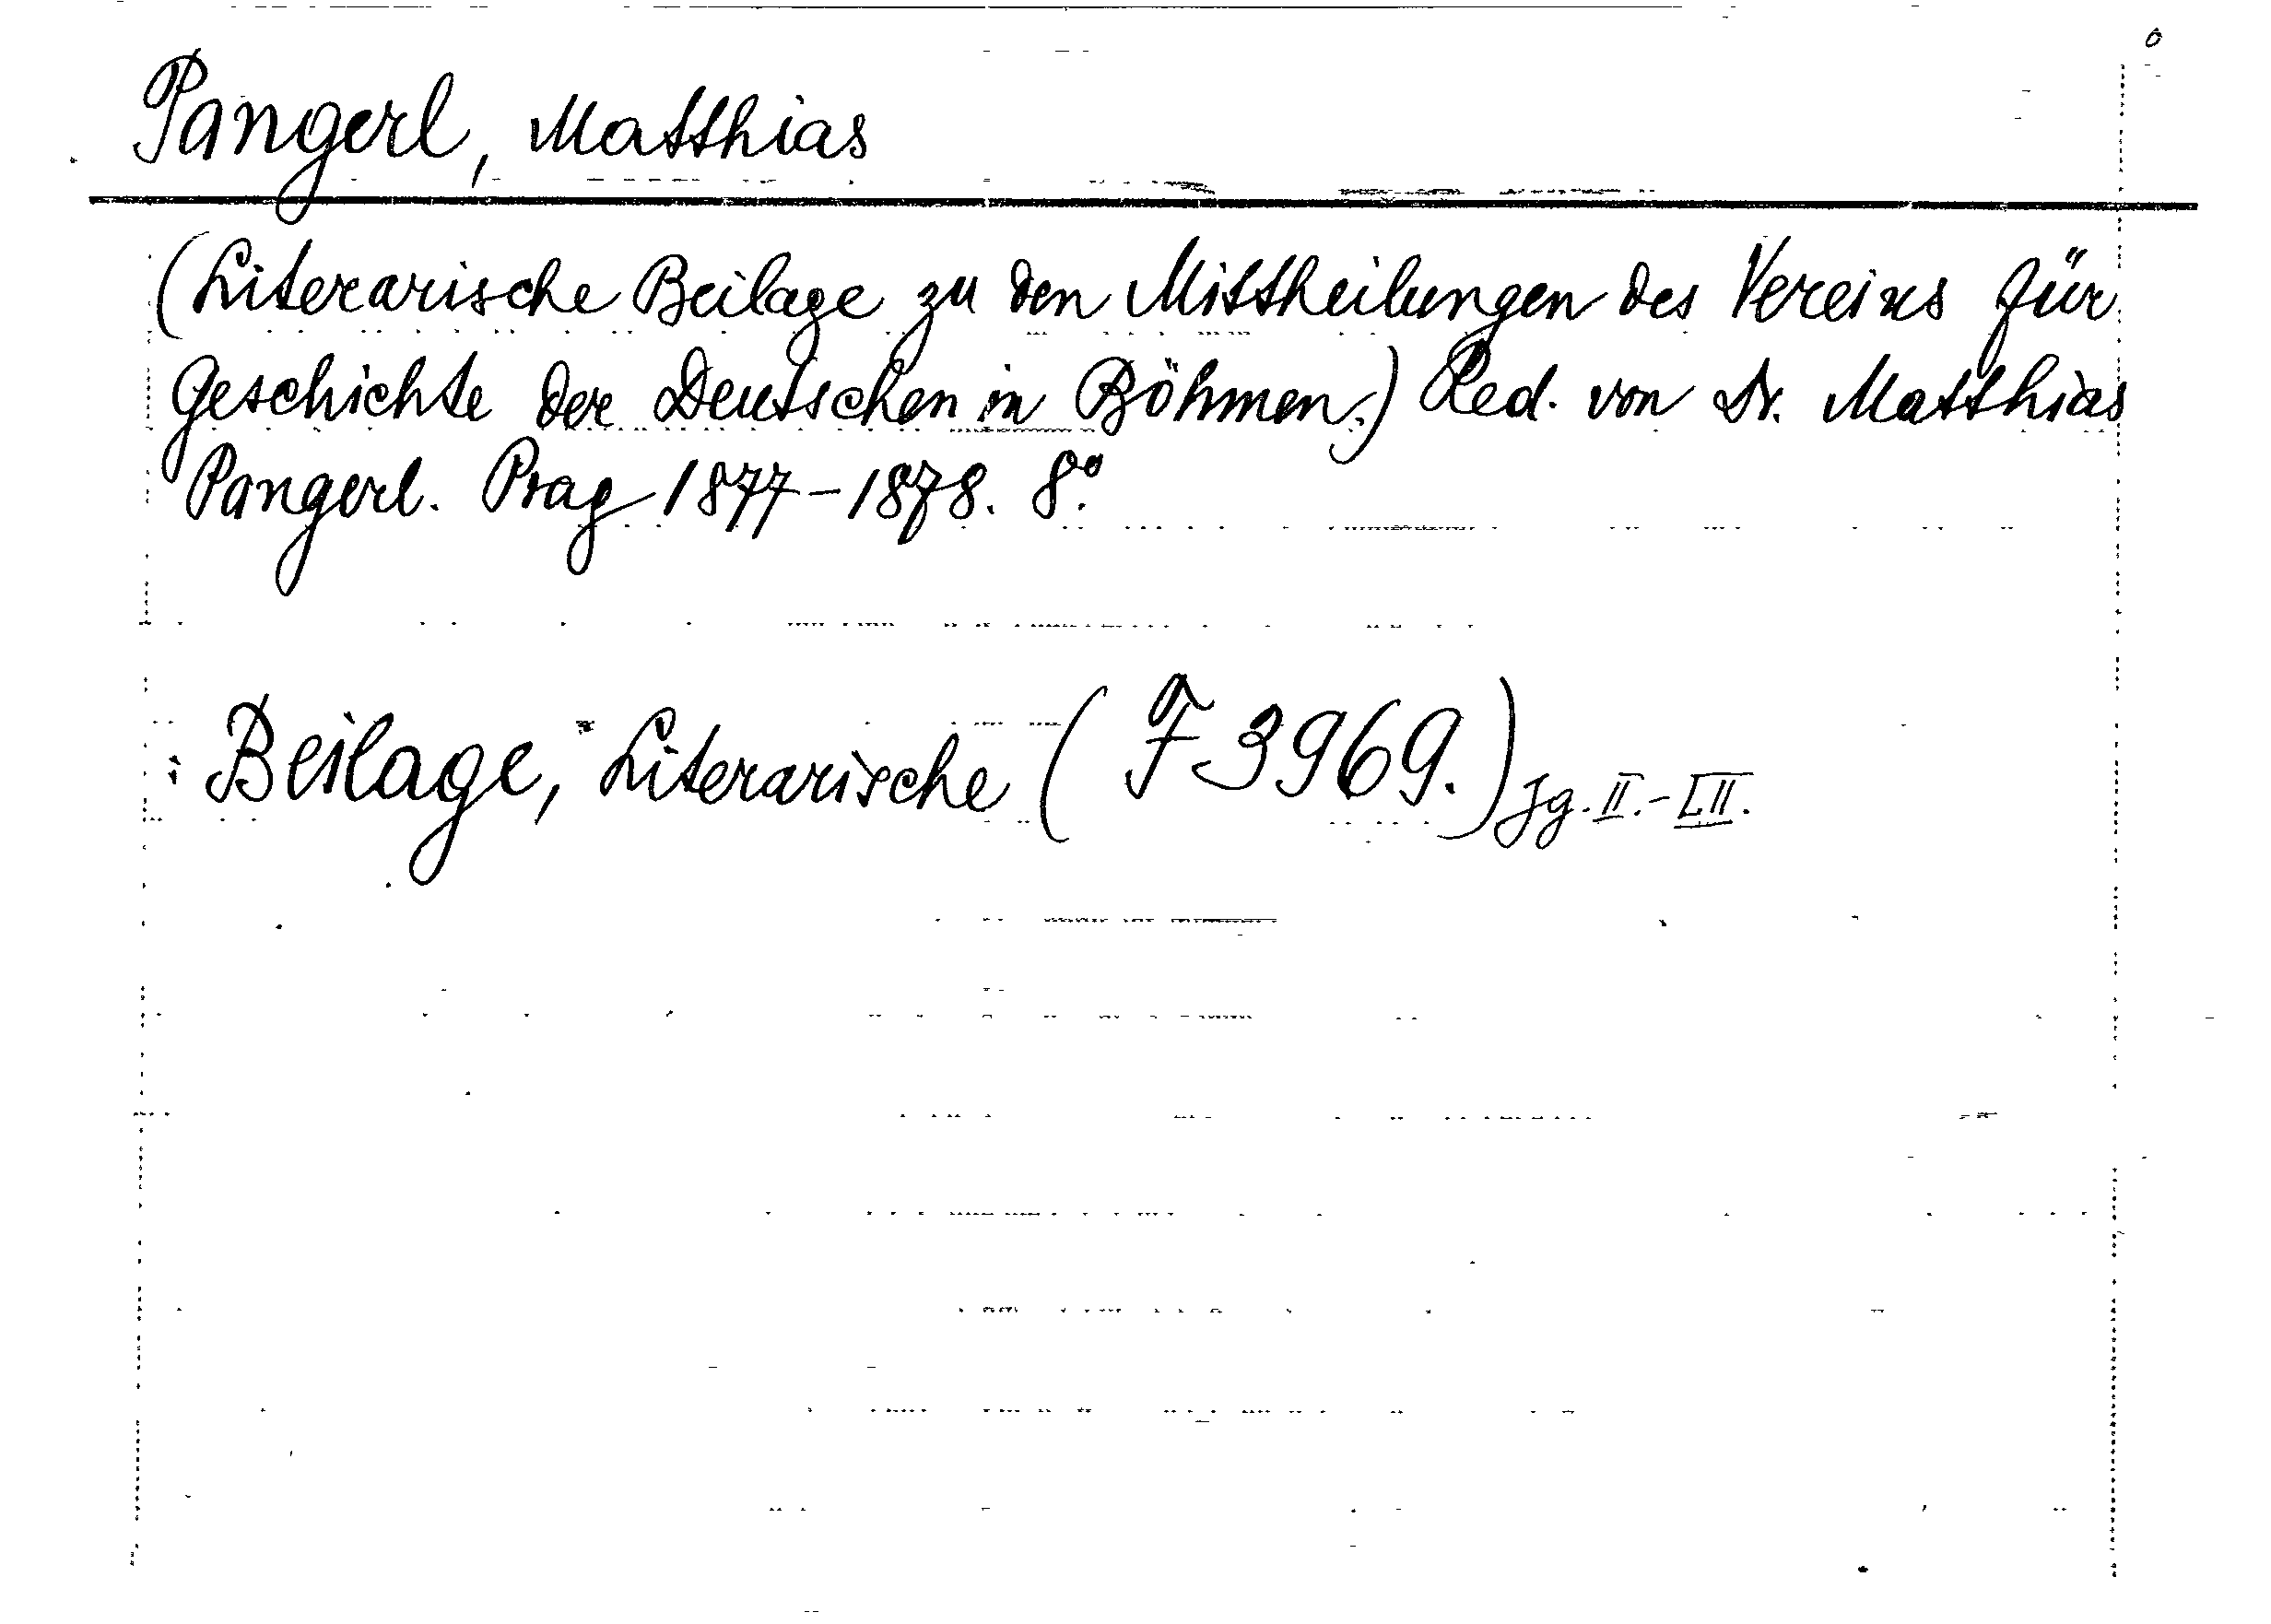 Pangerl, Matthias
(Literarische Beilage zu den Mittheilungen des Vereins für
Geschichte der Deutschen in Böhmen.) Red. von Dr. Matthias
Pangerl. Prag 1877-1878. 8.º
Beilage, Literarische (F 3969.) Jg. II.-LII.